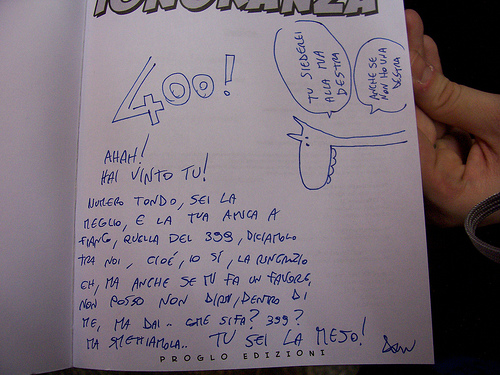 IGNORANZA
400!
TU SIEDERAI
ALLA MIA
DESTRA
ANCHE SE
NON HO UNA
DESTRA
AHAH!
HAI VINTO TU!
NUMERO TONDO, SEI LA
MEGLIO, E LA TUA AMICA A
FIANCO, QUELLA DEL 399, DICIAMOLO
TRA NOI, CIOÈ, IO SÌ, LA RINGRAZIO
EH, MA ANCHE SE MI FA UN FAVORE,
NON POSSO NON DIRMI, DENTRO DI
ME, MA DAI.. COME SI FA? 399?
MA SMETTIAMOLA.. TU SEI LA MEJO!
PROGLO EDIZIONI